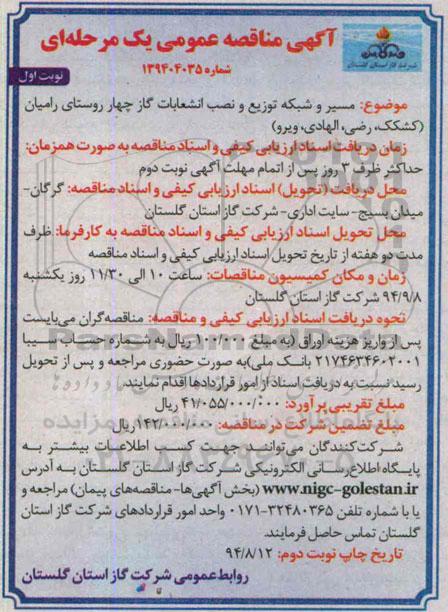 آگهی مناقصه عمومی یک مرحله‌ای
شرکت گاز استان گلستان
شماره ۱۳۹۴۰۴۰۳۵
نوبت اول
موضوع: مسیر و شبکه توزیع و نصب انشعابات گاز چهار روستای رامیان
(کشکک، رضی، الهادی، ویرو)
زمان دریافت اسناد ارزیابی کیفی و اسناد مناقصه به صورت همزمان:
حداکثر ظرف ۳ روز پس از اتمام مهلت آگهی نوبت دوم
محل دریافت (تحویل) اسناد ارزیابی کیفی و اسناد مناقصه: گرگان-
میدان بسیج- سایت اداری- شرکت گاز استان گلستان
محل تحویل اسناد ارزیابی کیفی و اسناد مناقصه به کارفرما: ظرف
مدت دو هفته از تاریخ تحویل اسناد ارزیابی کیفی و اسناد مناقصه
زمان و مکان کمیسیون مناقصات: ساعت ۱۰ الی ۱۱/۳۰ روز یکشنبه
۹۴/۹/۸ شرکت گاز استان گلستان
نحوه دریافت اسناد ارزیابی کیفی و مناقصه: مناقصه‌گران می‌بایست
پس از واریز هزینه اوراق (به مبلغ ۱۰۰/۰۰۰ ریال به شماره حساب سیبا
۲۱۷۴۶۳۴۶۰۲۰۰۱ بانک ملی) به صورت حضوری مراجعه و پس از تحویل
رسید نسبت به دریافت اسناد از امور قراردادها اقدام نمایند.
مبلغ تقریبی برآورد: ۴۱/۰۵۵/۰۰۰/۰۰۰ ریال
مبلغ تضمین شرکت در مناقصه: ۱۴۲/۰۰۰/۰۰۰ ریال
شرکت‌کنندگان می‌توانند جهت کسب اطلاعات بیشتر به
پایگاه اطلاع‌رسانی الکترونیکی شرکت گاز استان گلستان به آدرس
www.nigc-golestan.ir (بخش آگهی‌ها- مناقصه‌های پیمان) مراجعه و
یا با شماره تلفن ۳۲۴۸۰۳۶۵-۰۱۷۱ واحد امور قراردادهای شرکت گاز
گلستان تماس حاصل فرمایند.
تاریخ چاپ نوبت دوم: ۹۴/۸/۱۲
روابط عمومی شرکت گاز استان گلستان